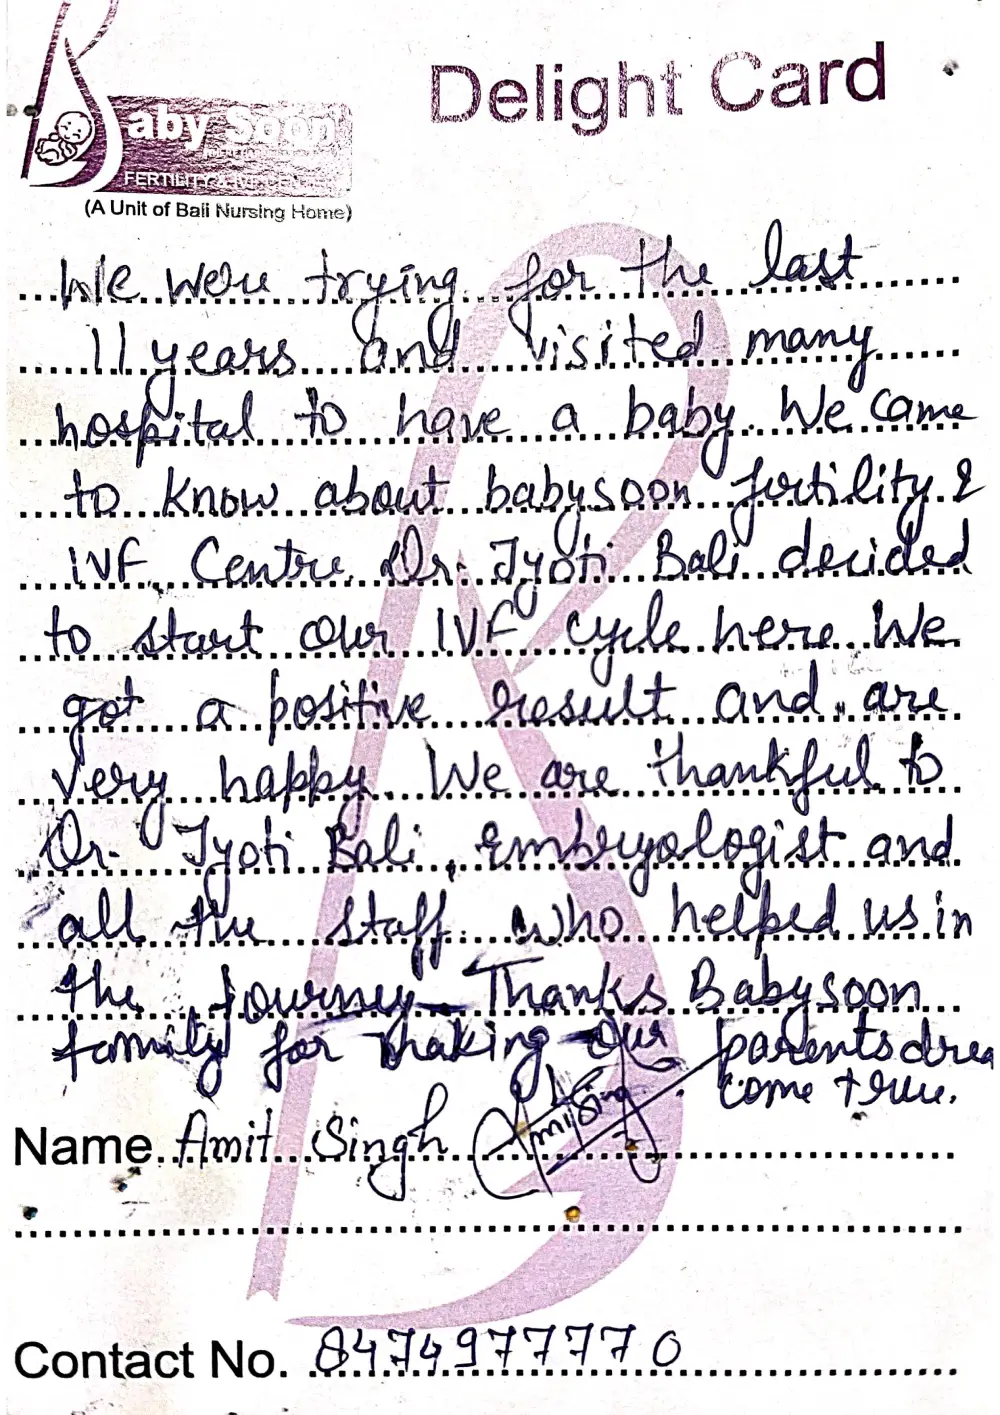 Delight Card
Baby Soon
FERTILITY & IVF CENTRE
(A Unit of Bali Nursing Home)
We were trying for the last
11 years and visited many
hospital to have a baby. We came
to know about babysoon fertility &
IVF Centre Dr. Jyoti Bali decided
to start our IVF cycle here. We
got a positive result and are
very happy. We are thankful to
Dr. Jyoti Bali, Embryologist and
all the staff who helped us in
the journey Thanks Babysoon
family for making our parents drea
come true.
Name Amit Singh
Contact No. 8474977770